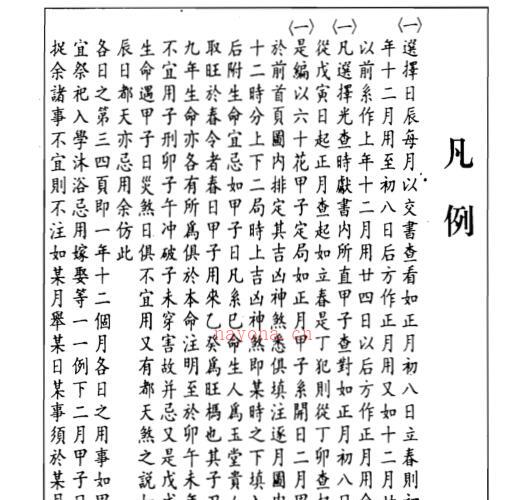 凡例
㈠選擇日辰每月以交書查看如正月初八日立春則初
年十二月用至初八日后方作正月用又如十二月廿
以前系作上年十二月用廿四日以后方作正月用余
㈠凡選擇光查時獻書内所直甲子查對如正月初八日
從戊寅日起正月查起如立春是丁犯則從丁卯查起
㈠是編以六十花甲子定局如正月甲子系開日二月甲
於前首頁圖内排定其吉凶神煞悉俱填注逐月圖内
十二時分上下二局時上吉凶神煞即某時之下填入
后附生命宜忌如甲子日凡系巳命生人爲玉堂貴人
取旺於春令者春日甲子用來乙癸爲旺榪也其子丑
九年生命亦各有所爲俱於本命注明至於卯午未年
不宜用子刑卯子午冲破子未穿害故并忌又是戊戌
生命遇甲子日災煞日俱不宜用又有都天煞之說如
辰日都天亦忌用余仿此
各日之第三四頁即一年十二個月各日之用事如甲
宜祭祀入學沐浴忌用嫁娶等一一例下二月甲子日
捉余諸事不宜則不注如某月舉某日某事須於某月
nayona.cn